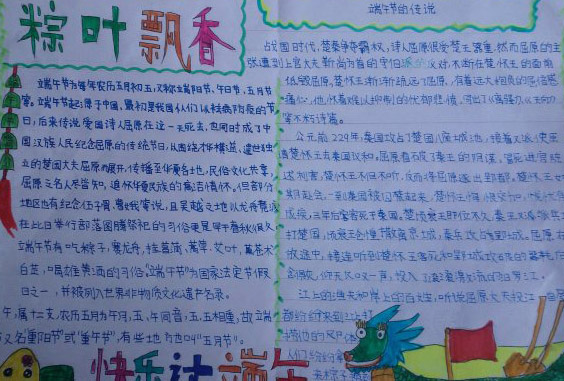 粽叶飘香
端午节为每年农历五月初五,又称端阳节、午日节,五月节
等。端午节起源于中国,最初是我国人们以祛病防疫的节
日,后来传说爱国诗人屈原在这一天死去,也同时成了中
国汉族人民纪念屈原的传统节日,
立的楚国大夫屈原而展开,传播至华夏各地,民俗文化共享,
屈原之名人尽皆知,追怀华夏民族的高洁情怀。但部分
地区也有纪念伍子胥、曹娥等说,且吴越之地以龙舟竞渡
在此日举行部落图腾祭祀的习俗更是早于春秋很久
端午节有吃粽子,赛龙舟,挂菖蒲、蒿草、艾叶,薰苍术
白芷,喝雄黄酒的习俗。端午节为国家法定节假
日之一,并被列入世界非物质文化遗产名录。
午,属十二支,农历五月为午月,五、午同音,五、五相连,故端
又名"重阳节"或"重午节",有些地方也叫"五月节"。
快乐过端午
端午节的传说
战国时代,楚秦争夺霸权,诗人屈原很受楚王器重,然而屈原的主
张遭到上官大夫靳尚为首的守旧派的反对,不断在楚怀王的面前
诋毁屈原,楚怀王渐渐疏远了屈原,有着远大抱负的屈原倍感
痛心,他怀着难以抑制的忧郁悲愤,写出了《离骚》、《天向》
等不朽诗篇。
公元前229年,秦国攻占了楚国八座城池,接着又派使臣
请楚怀王去秦国议和。屈原看破了秦王的阴谋,冒死进宫陈
述利害,楚怀王不但不听,反而将屈原逐出郢都。楚怀王如
期赴会,一到秦国就被囚禁起来,楚怀王悔恨交加,忧郁
成疾,三年后客死于秦国。楚顷襄王即位不久,秦王又派兵
打楚国,顷襄王仓惶撤离京城,秦兵攻占郢城。屈原在
放途中,接连听到楚怀王客死和郢城攻破的噩耗后
念俱灰,仰天长叹一声,投入了滚滚激流的汨罗江。
江上的渔夫和岸上的百姓,听说屈原大夫投江
都纷纷来到江上打
捞他的尸体
人们纷纷拿